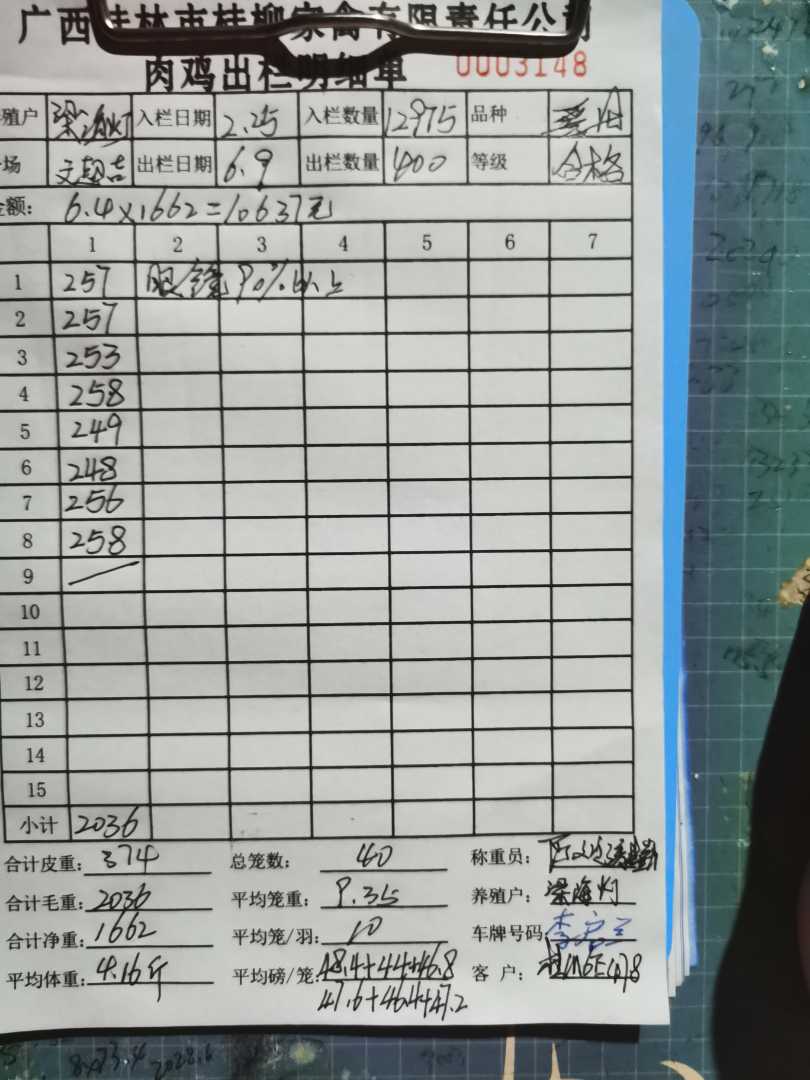 广西桂林市桂柳家禽有限责任公司
肉鸡出栏明细单 0003148
殖户 梁海灯 入栏日期 2.25 入栏数量 12975 品种
场 文超吉 出栏日期 6.9 出栏数量 400 等级 合格
金额: 6.4×1662=10637元
1 2 3 4 5 6 7
1 257 眼镜90%以上
2 257
3 253
4 258
5 249
6 248
7 256
8 258
9
10
11
12
13
14
15
小计 2036
合计皮重: 374 总笼数: 40 称重员:
合计毛重: 2036 平均笼重: 9.35 养殖户: 梁海灯
合计净重: 1662 平均笼/羽: 10 车牌号码:
平均体重: 4.16斤 平均磅/笼: 48.4+44+46.8 客 户:
47.6+46.4+47.2